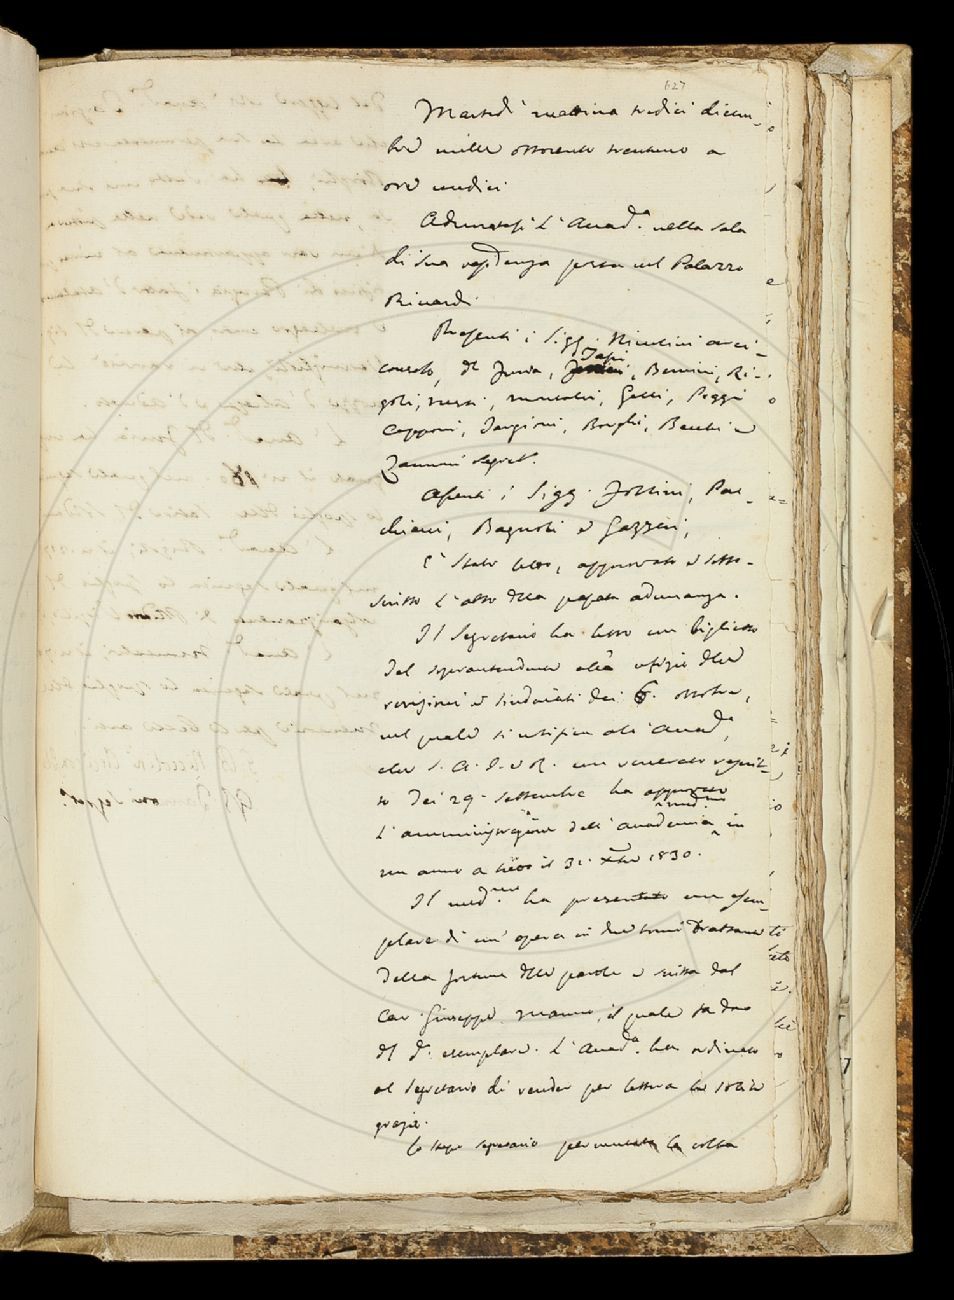 627
Martedì mattina tredici dicem-
bre mille ottocento trentuno a
ore undici
Adunatasi l'Accad.a nella sala
di sua residenza posta nel Palazzo
Riccardi
Presenti i Sigg. Niccolini arci-
consolo, Del Furia, Tassi, Bencini, Ri-
goli, Nesti, Gelli, Poggi
Capponi, Targioni, Borghi, Becchi e
Zannoni segret.
Assenti i Sigg. Follini, Pac-
chiani, Bagnoli e Gazzeri,
È stato letto, approvato e sotto-
scritto l'atto della passata adunanza.
Il Segretario ha letto un biglietto
del soprintendente alle ufizio delle
revisioni e sindacati dei 6. ottobre,
nel quale si notifica all'Accad.a
che S. A. I. e R. con venerato rescrit-
to dei 29. settembre ha approvato
l'amministrazione dell'accademia in
un anno a tutto il 31. Xbre 1830.
Il med.mo ha presentato un esem-
plare di un'opera in due tomi trattante
della fortuna delle parole e scritta dal
Cav. Giuseppe Manno, il quale fa dono
del d.o esemplare. L'Accad.a ha ordinato
al segretario di render per lettera le solite
grazie.
Lo stesso segretario la